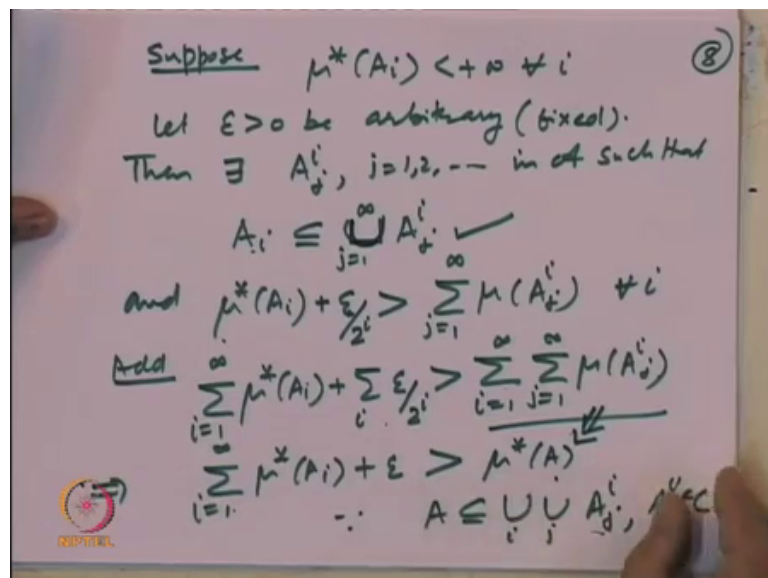 Suppose μ*(Ai) < +∞ ∀ i
⑧
Let ε > 0 be arbitrary (fixed).
Then ∃ A_j^i, j=1,2,--- in A such that
A_i ⊆ ⋃_{j=1}^∞ A_j^i ✓
and μ*(Ai) + ε/2^i > ∑_{j=1}^∞ μ(A_j^i) ∀ i
Add ∑_{i=1}^∞ μ*(Ai) + ∑_i ε/2^i > ∑_{i=1}^∞ ∑_{j=1}^∞ μ(A_j^i)
⇒ ∑_{i=1}^∞ μ*(Ai) + ε > μ*(A)
∵ A ⊆ ⋃_i ⋃_j A_j^i,
NPTEL